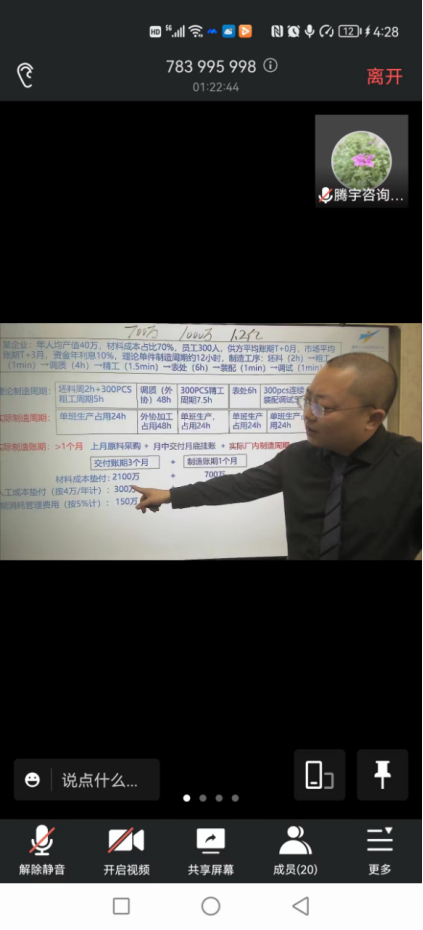 HD 5G 12 4:28
783 995 998
01:22:44
离开
腾宇咨询...
700万 1000万 1.2亿
某企业：年人均产值40万，材料成本占比70%，员工300人，供方平均账期T+0月，市场平均
账期T+3月，资金年利息10%，理论单件制造周期约12小时，制造工序：坯料（2h）→粗工
（1min）→调质（4h）→精工（1.5min）→表处（6h）→装配（1min）→调试（1min
论制造周期： 坯料周2h+300PCS粗工周期5h 调质（外协）48h 300PCS精工周期7.5h 表处6h 300pcs连续
装配调试
际制造周期： 单班生产占用24h 外协加工占用48h 单班生产，占用24h 单班生产占用24h 单班生产
用24h
际制造账期：>1个月 上月原料采购 + 月中交付月底挂账 + 实际厂内制造周期
交付账期3个月 + 制造账期1个月
材料成本垫付：2100万 + 700万
人工成本垫付（按4万/年计）：300万
消耗管理费用（按5%计）：150万
说点什么...
解除静音 开启视频 共享屏幕 成员(20) 更多